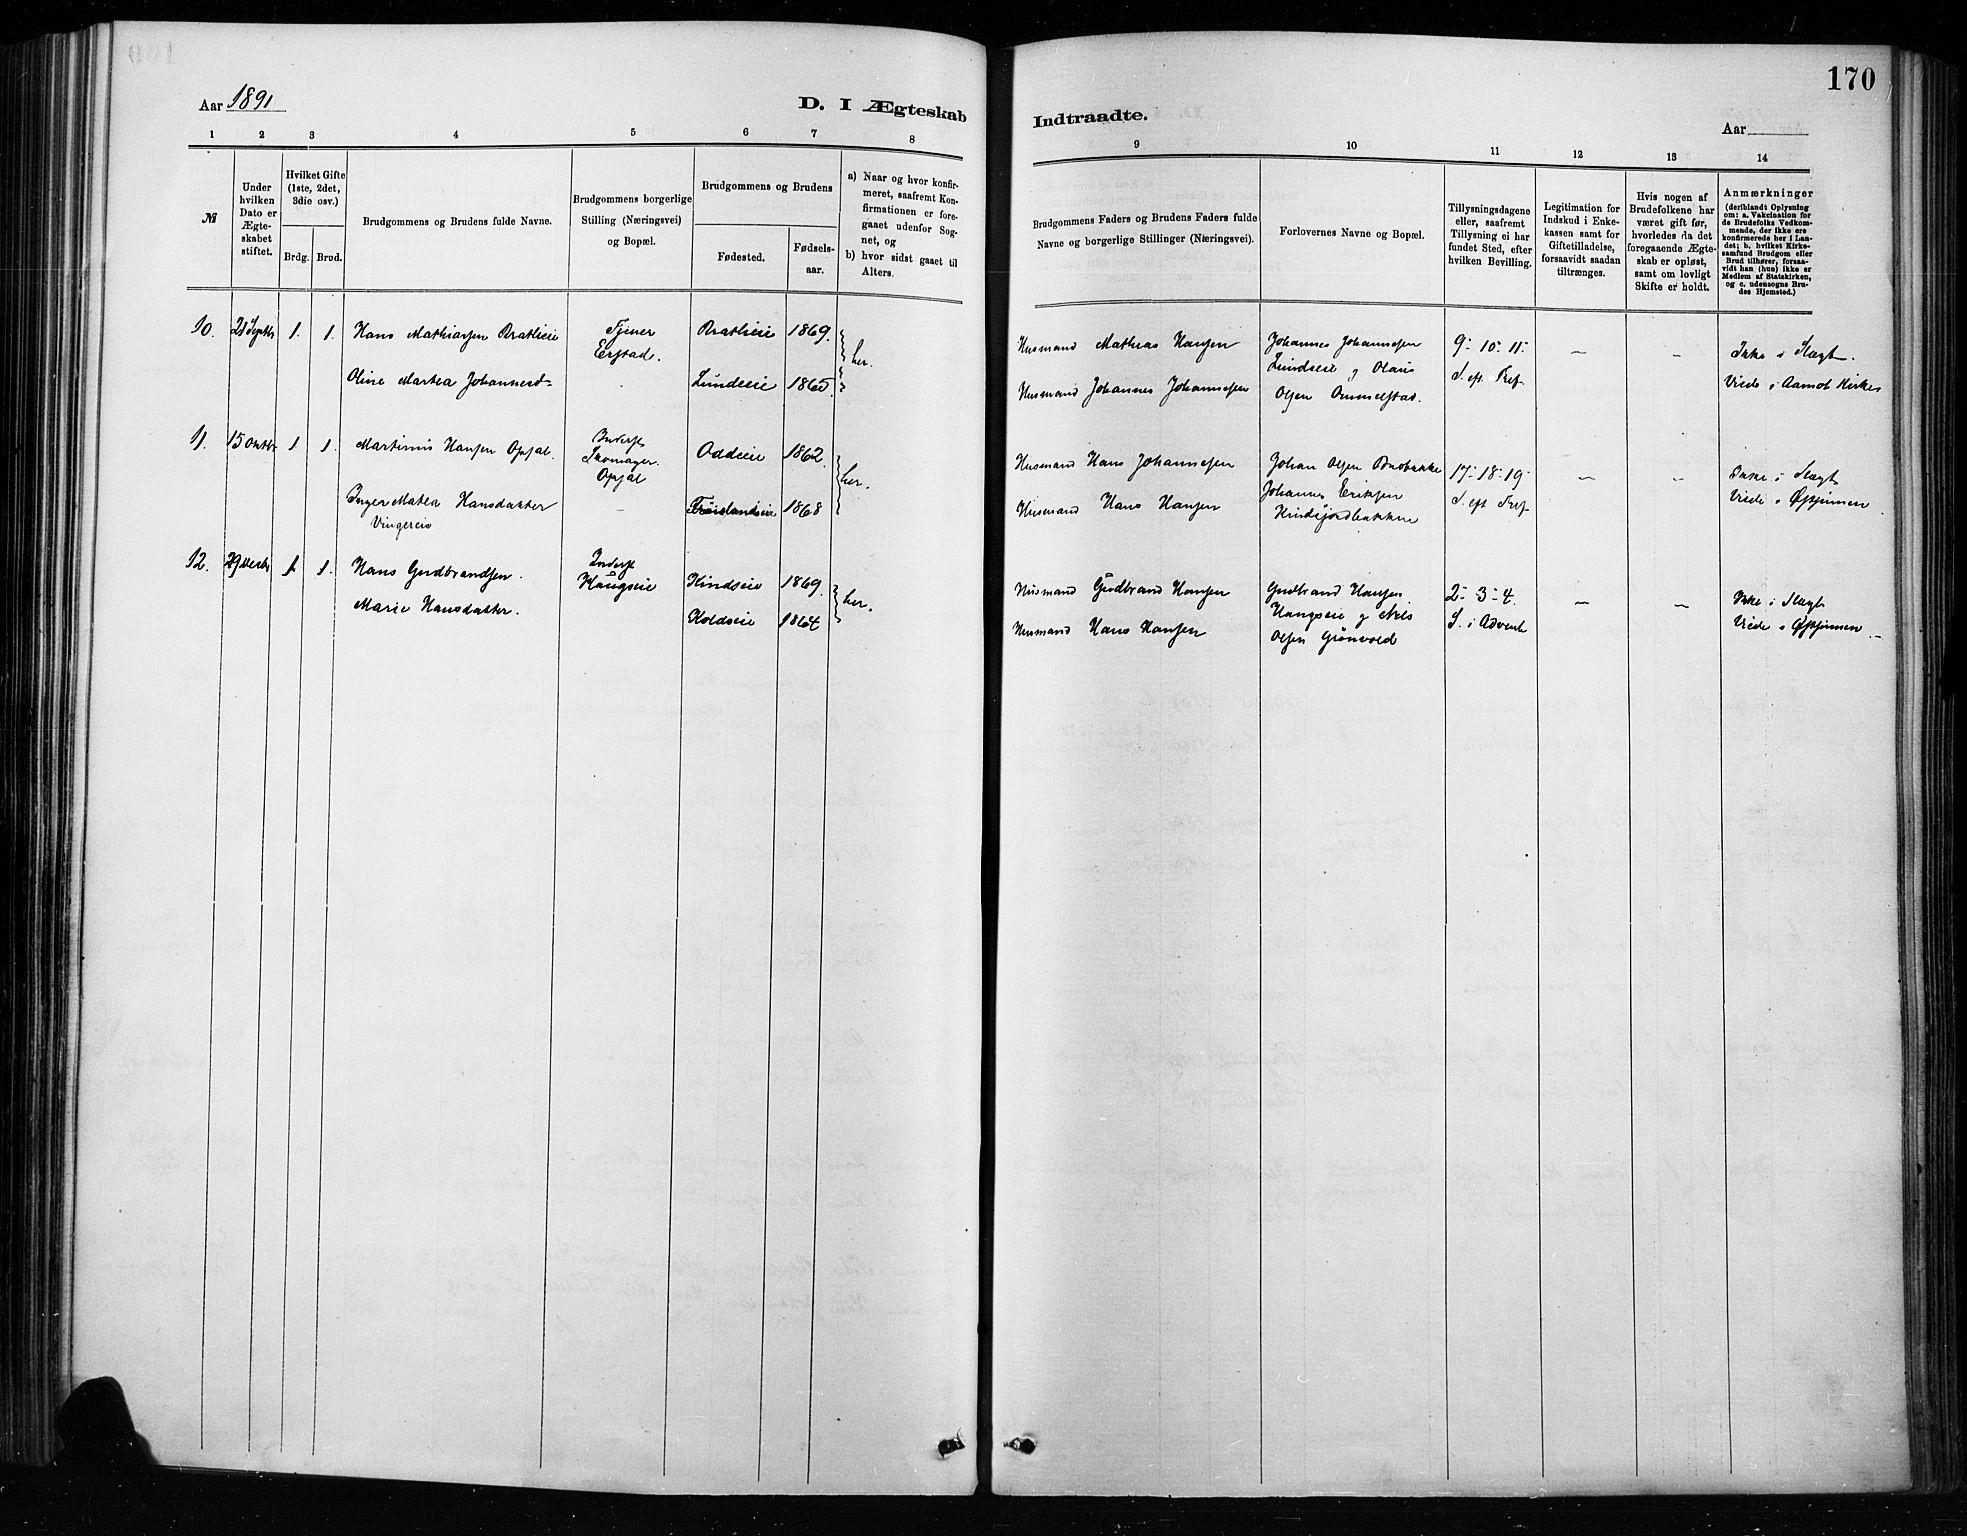 170
Aar 1891
D. I Ægteskab
Indtraadte.
Aar
1 2 3 4 5 6 7 8
9 10 11 12 13 14
№
Under
hvilken
Dato er
Ægte-
skabet
stiftet.
Hvilket Gifte
(1ste, 2det,
3die osv.)
Brdg. Brud.
Brudgommens og Brudens fulde Navne.
Brudgommens borgerlige
Stilling (Næringsvei)
og Bopæl.
Brudgommens og Brudens
Fødested.
Fødsels-
aar.
a) Naar og hvor konfir-
meret, saafremt Kon-
firmationen er fore-
gaaet udenfor Sog-
net, og
b) hvor sidst gaaet til
Alters.
Brudgommens Faders og Brudens Faders fulde
Navne og borgerlige Stillinger (Næringsvei).
Forlovernes Navne og Bopæl.
Tillysningsdagene
eller, saafremt
Tillysning ei har
fundet Sted, efter
hvilken Bevilling.
Legitimation for
Indskud i Enke-
kassen samt for
Giftetilladelse,
forsaavidt saadan
tiltrænges.
Hvis nogen af
Brudefolkene har
været gift før,
hvorledes da det
foregaaende Ægte-
skab er opløst,
samt om lovligt
Skifte er holdt.
Anmærkninger
(deriblandt Oplysning
om: a. Vakcination for
de Brudefolks Vedkom-
mende, der ikke ere
konfirmerede her i Lan-
det; b. hvilket Kirke-
samfund Brudgom eller
Brud tilhører, forsaa-
vidt han (hun) ikke er
Medlem af Statskirken,
og c. udensogns Bru-
des Hjemsted.)
10. Septbr 1. 1. Hans Mathiassen Bratlieie
Tjener
Erstad.
Bratlieie 1869. her.
Oline Martea Johannesd= Lundseie 1865.
Husmand Mathias Hansen
Husmand Johannes Johannesen
Johannes Johannesen
Lundseie og Olaus
Olsen Ommelstad.
9- 10- 11-
S. eft. Tref.
– –
Ikke i Slægt.
Viede i Aamot Kirke
11. 15 Oktbr 1 1. Martinius Hansen Opsal.
Inderst
Skomager.
Opsal
Oddeie 1862. her.
Inger Matea Hansdatter
Vingereie
– Frøislandseie 1868
Husmand Hans Johannesen
Husmand Hans Hansen
Johan Olsen
Johannes Eriksen
17- 18- 19-
S. eft Tref
– –
Ikke i Slægt
Viede i Østsinnen
12. 29 1 1. Hans Gudbrandsen.
Inderst
Haugseie
Kindseie 1869. her.
Marie Hansdatter. Koldseie 1864
Husmand Gudbrand Hansen
Husmand Hans Hansen
Gudbrand Hansen
Haugseie og Nils
Olsen Grönvold
2- 3- 4.
S. i Advent
– –
Ikke i Slægt
Viede i Østsinnen